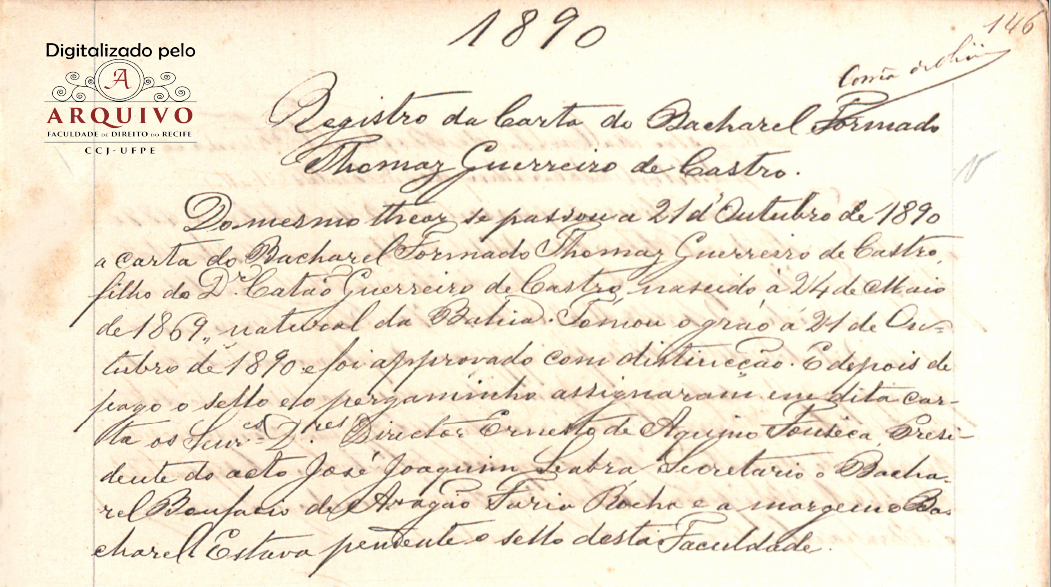 1890
146
Digitalizado pelo
A
ARQUIVO
FACULDADE DE DIREITO DO RECIFE
CCJ-UFPE
Registro da Carta do Bacharel Formado
Thomaz Guerreiro de Castro.
Do mesmo theor se passou a 21 d'Outubro de 1890
a carta do Bacharel Formado Thomaz Guerreiro de Castro,
filho do Dr. Catão Guerreiro de Castro, nascido á 24 de Maio
de 1869, natural da Bahia. Tomou o gráo á 21 de Ou-
tubro de 1890 e foi approvado com distincção. E depois de
pago o sello e o pergaminho assignaram em dita car-
ta os Senrs. Dres. Director Ernesto de Aquino Fonseca, Presi-
dente do acto José Joaquim Seabra Secretario o Bacha-
rel Bonifacio de Aragão Faria Rocha e a margem o Ba-
charel Estava pendente o sello desta Faculdade.